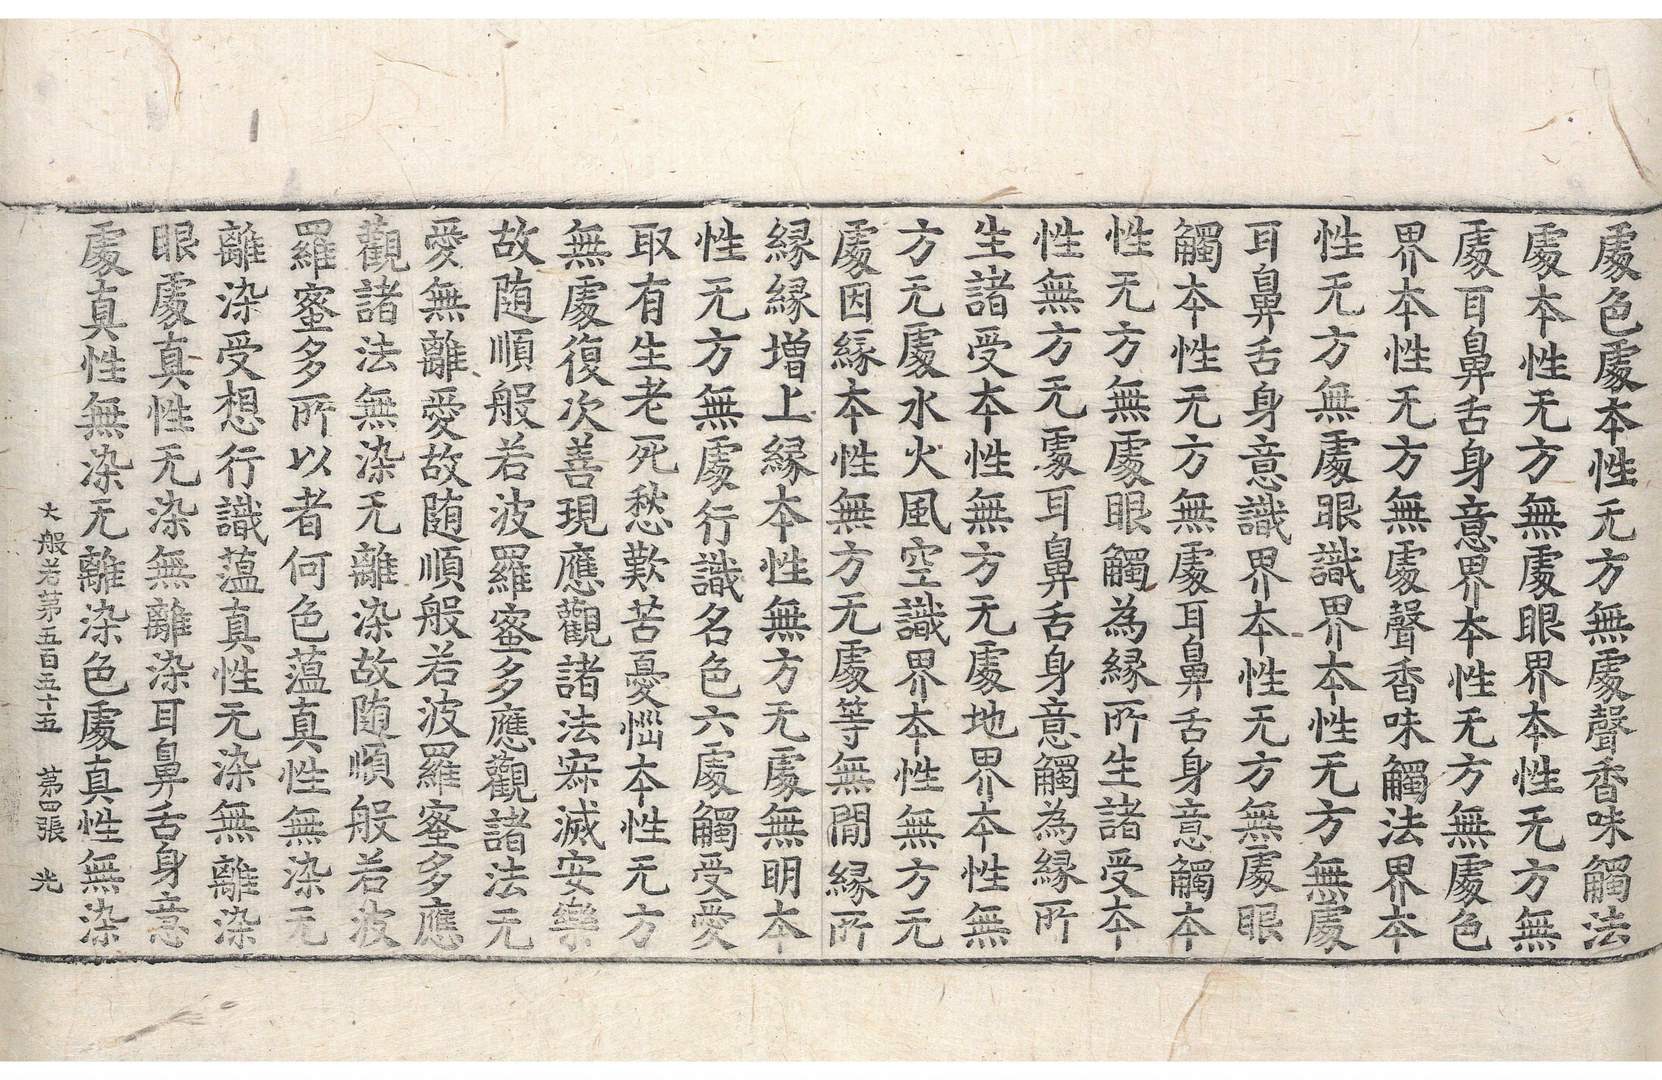 處色處本性无方無處聲香味觸法
處本性无方無處眼界本性无方無
處耳鼻舌身意界本性无方無處色
界本性无方無處聲香味觸法界本
性无方無處眼識界本性无方無處
耳鼻舌身意識界本性无方無處眼
觸本性无方無處耳鼻舌身意觸本
性无方無處眼觸為縁所生諸受本
性無方无處耳鼻舌身意觸為縁所
生諸受本性無方无處地界本性無
方无處水火風空識界本性無方无
處因縁本性無方无處等無間縁所
縁縁增上縁本性無方无處無明本
性无方無處行識名色六處觸受愛
取有生老死愁歎苦憂惱本性无方
無處復次善現應觀諸法寂滅安樂
故随順般若波羅蜜多應觀諸法无
愛無離愛故随順般若波羅蜜多應
觀諸法無染无離染故随順般若波
羅蜜多所以者何色蕰真性無染无
離染受想行識蕰真性无染無離染
眼處真性无染無離染耳鼻舌身意
處真性無染无離染色處真性無染
大般若第五百五十五 第四張 光